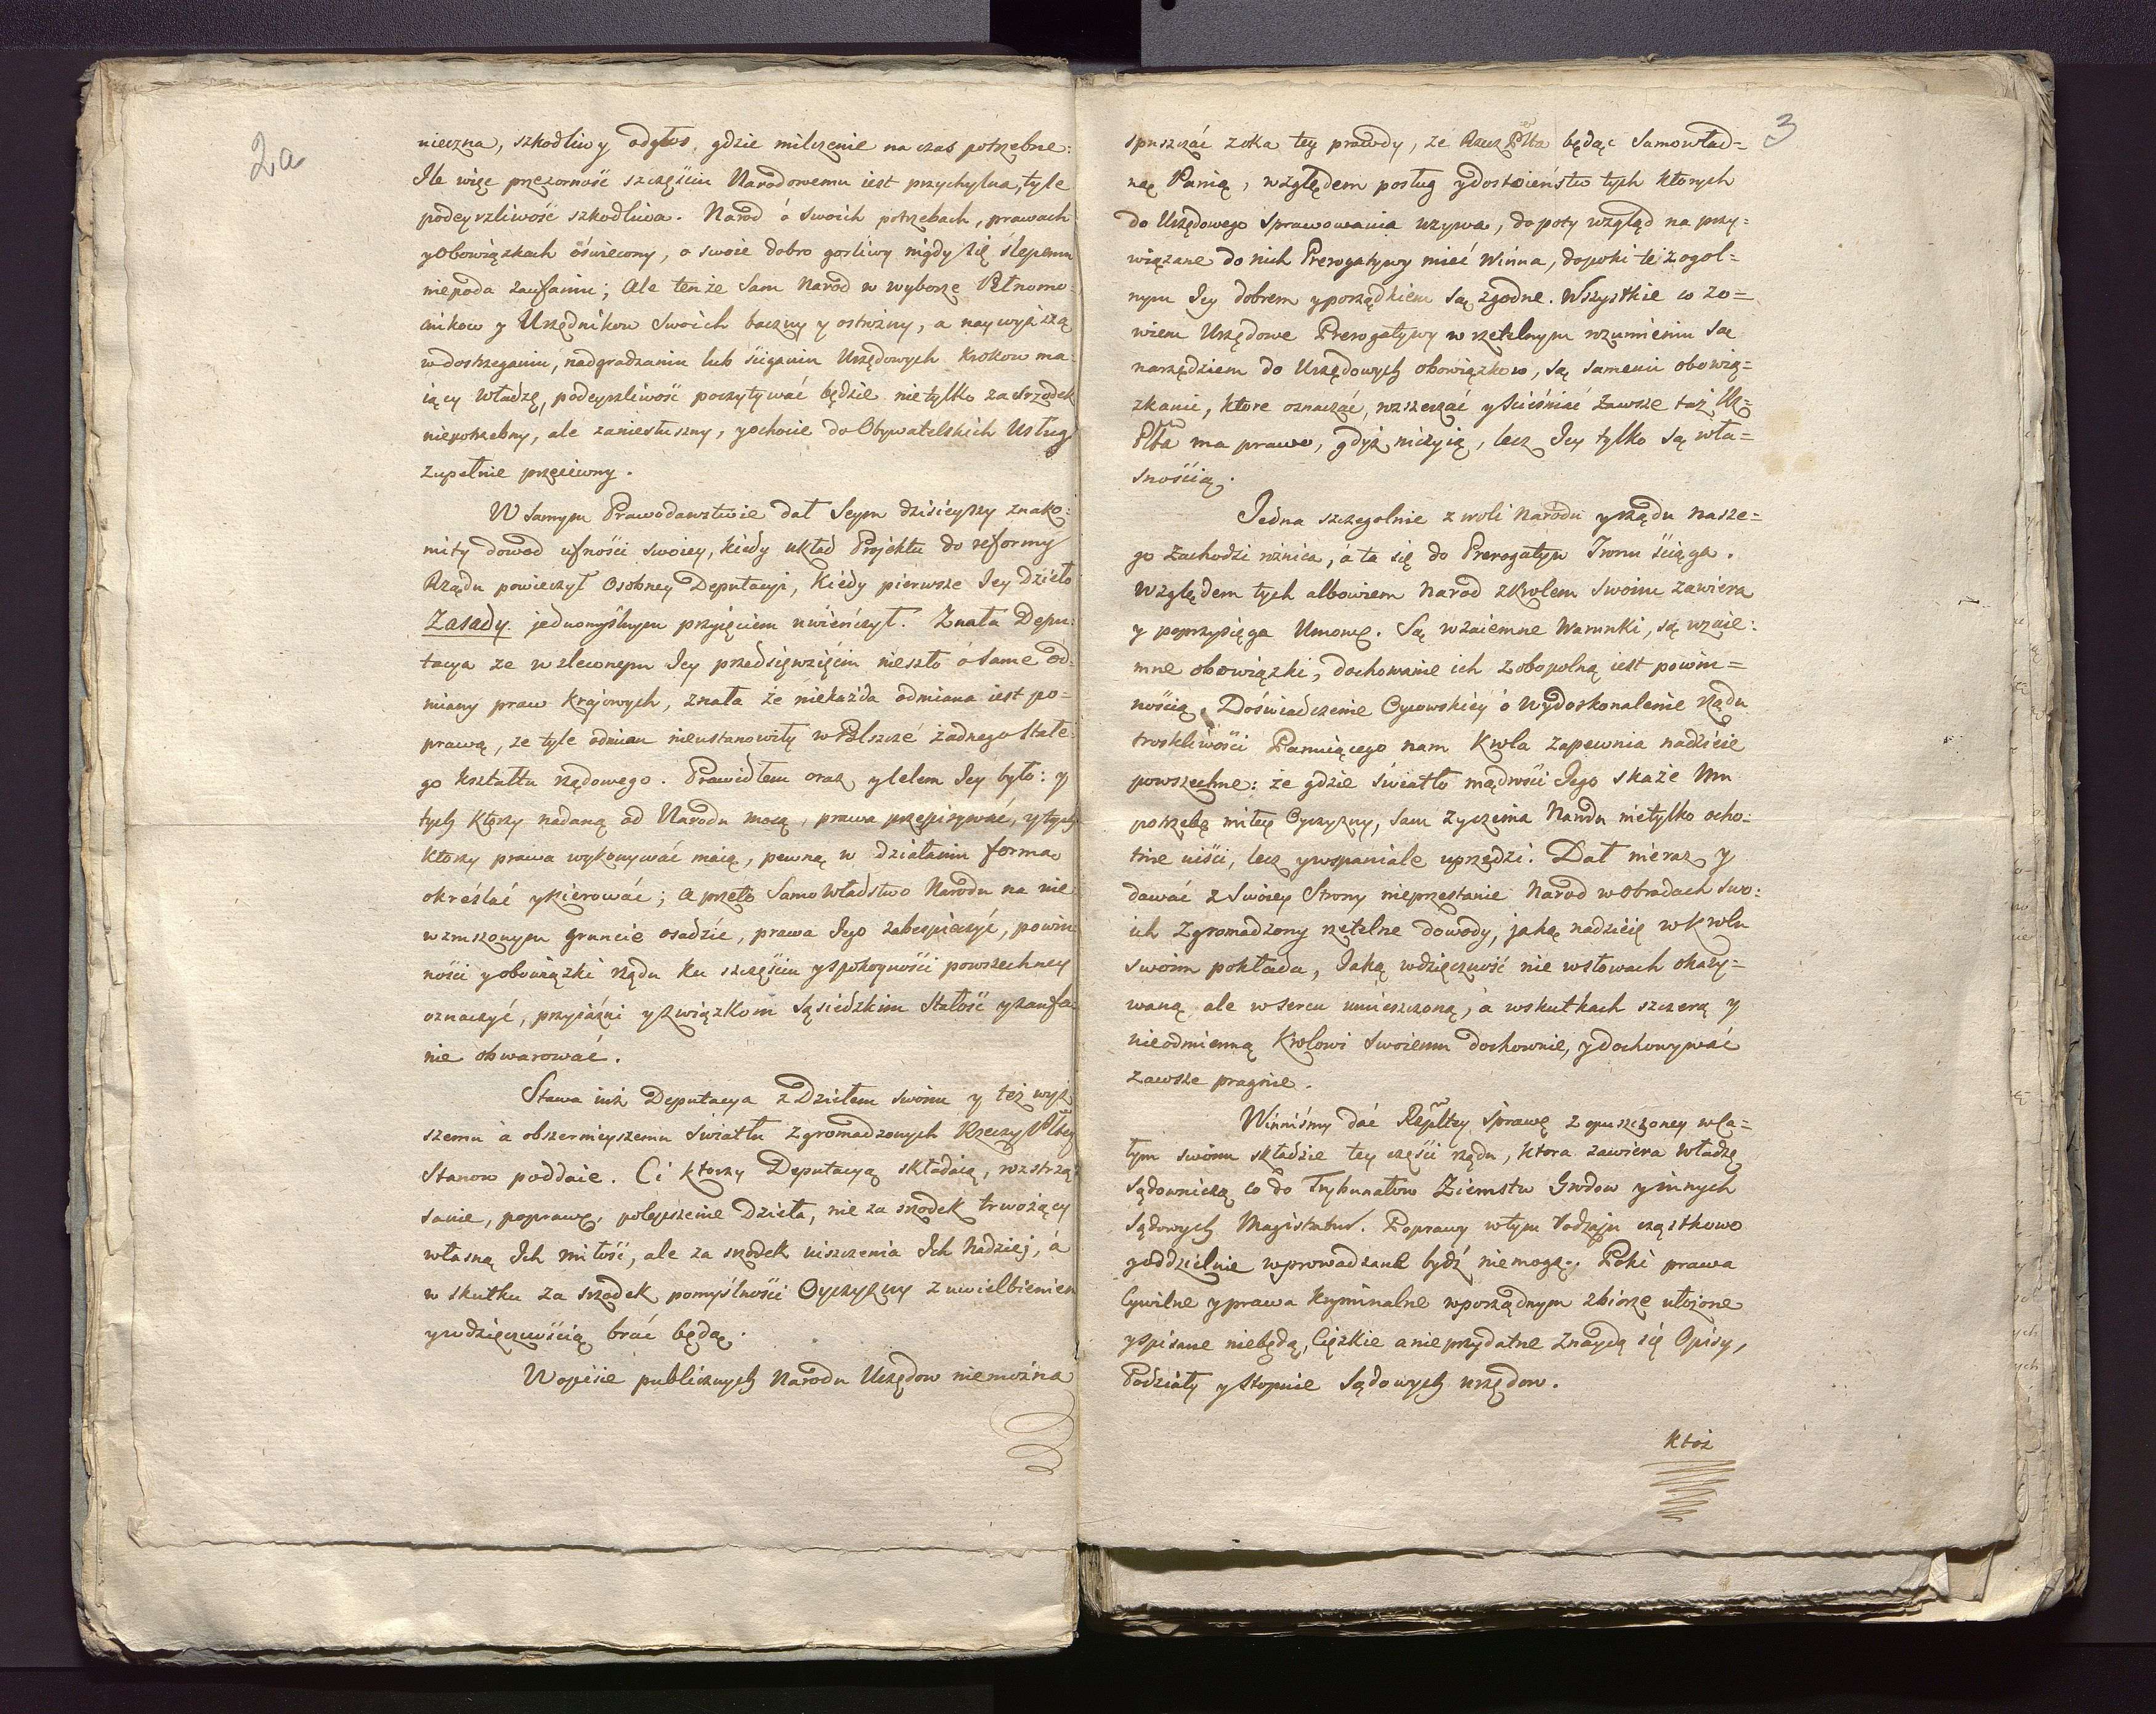 2a
nieczna, szkodliwy odgłos, gdzie milczenie na czas potrzebne:
Ile więc przezorność szczęściu Narodowemu iest przychylna, tyle
podeyrzliwość szkodliwa. Narod o swoich potrzebach, prawach
y obowiązkach oświecony, o swoie dobro gorliwy nigdy się ślepemu
niepoda zaufaniu; Ale tenże sam Narod w wyborze Pełnomo-
cnikow y Urzędnikow swoich baczny y ostrożny, a naywyższą
w dostrzeganiu, nadgradzaniu lub ściganiu Urzędowych krokow ma-
iący władzę, podeyrzliwość poczytywać będzie nietylko za śrzodek
niepotrzebny, ale zaniesłuszny, y ochocie do Obywatelskich Usług
zupełnie przeciwny.
W samym Prawodawztwie dał Seym dzisieyszy znako:
mity dowod ufności swoiey, kiedy układ Projektu do reformy
Rządu powierzył osobney Deputacyi, kiedy pierwsze Jey dzieło
Zasady jednomyślnym przyięciem uwieńczył. Znała Depu:
tacya że w zleconym Jey przedsięwzięciu nieszło o same od-
miany praw krajowych, znała że niekażda odmiana iest po-
prawą, że tyle odmian nieustanowiły w Polszcze żadnego stałe
go kształtu rządowego. Prawidłem oraz y celem Jey było: y
tych ktorzy nadaną od Narodu mocą, prawa przepisywać, y tych
ktorzy prawa wykonywać maią, pewną w działaniu formą
określać y kierować; a przeto Samowładstwo Narodu na nie
wzruszonym gruncie osadzić, prawa Jego zabespieczyć, powin
ności y obowiązki rządu ku szczęściu y spokoyności powszechney
oznaczyć, przyiaźni y związkom sąsiedzkim stałość y zaufa
nie obwarować.
Stawa iuż Deputacya z Dziełem swoim y też wyż
szemu a obszernieyszemu światłu zgromadzonych Rzeczy Pltey
Stanow poddaie. Ci ktorzy Deputacyą składaią, roztrzą
sanie, poprawę, polepszenie Dzieła, nie za srzodek trwożący
własną Ich miłość, ale za srzodek uiszczenia Ich nadziej, a
w skutku za srzodek pomyślności Oyczyzny z uwielbieniem
y wdzięcznością brać będą.
W opisie publicznych Narodu Urzędow niemożna
3
spuszczać z oka tey prawdy, że Rzecz Plta będąc samowład=
ną Panią, względem posług y dostoieństw tych ktorych
do Urzędowego sprawowania używa, dopoty wzgląd na przy=
wiązane do nich Prerogatywy mieć winna, dopoki te z ogol=
nym Jey dobrem y porządkiem są zgodne. Wszystkie co zo=
wiem Urzędowe Prerogatywy w rzetelnym rozumieniu są
narzędziem do Urzędowych obowiązkow, są samemi obowią=
zkami, ktore oznaczać, rozszerzać y ścieśniać zawsze taż Rz=
Plta ma prawo, gdyż niczyią, lecz Jey tylko są wła=
snością.
Jedna szczegolnie z woli Narodu y rządu nasze=
go zachodzi rożnica, a ta się do Prerogatyw Tronu ściąga.
Względem tych albowiem Narod z Krolem swoim zawiera
y poprzysięga Umowę. Są wzaiemne Warunki, są wzaie:
mne obowiązki, dochowanie ich zobopolną iest powin=
nością. Doświadczenie Oycowskiey o wydoskonalenie rządu
troskliwości Panuiącego nam Krola zapewnia nadzieie
powszechne: że gdzie światło mądrości Jego skaże Mu
potrzebę miłey Oyczyzny, sam życzenia Narodu nietylko ocho:
tnie uiści, lecz y wspaniale uprzedzi. Dał nieraz y
dawać z Swoiey Strony nieprzestanie Narod w obradach swo:
ich Zgromadzony rzetelne dowody, jaką nadzieię w Krolu
swoim pokłada, Jaką wdzięczność nie w słowach okazy=
waną, ale w sercu umieszczoną, a w skutkach szczerą y
nieodmienną Krolowi swoiemu dochownie, y dochowywać
zawsze pragnie.
Winniśmy dać Rzpltey sprawę z opuszczoney w ca=
łym swoim składzie tey części rządu, ktora zawiera władzę
sądowniczą co do Trybunałow Ziemstw Grodow y innych
sądowych Magistratur. Poprawy w tym rodzaju cząstkowo
y oddzielnie wprowadzane bydź niemogą. Poki prawa
Cywilne y prawa kryminalne w porządnym zbiorze ułożone
y spisane niebędą, Ciężkie a nieprzydatne znaydą się Opisy,
Podziały y stopnie sądowych urzędow.
Ktoż